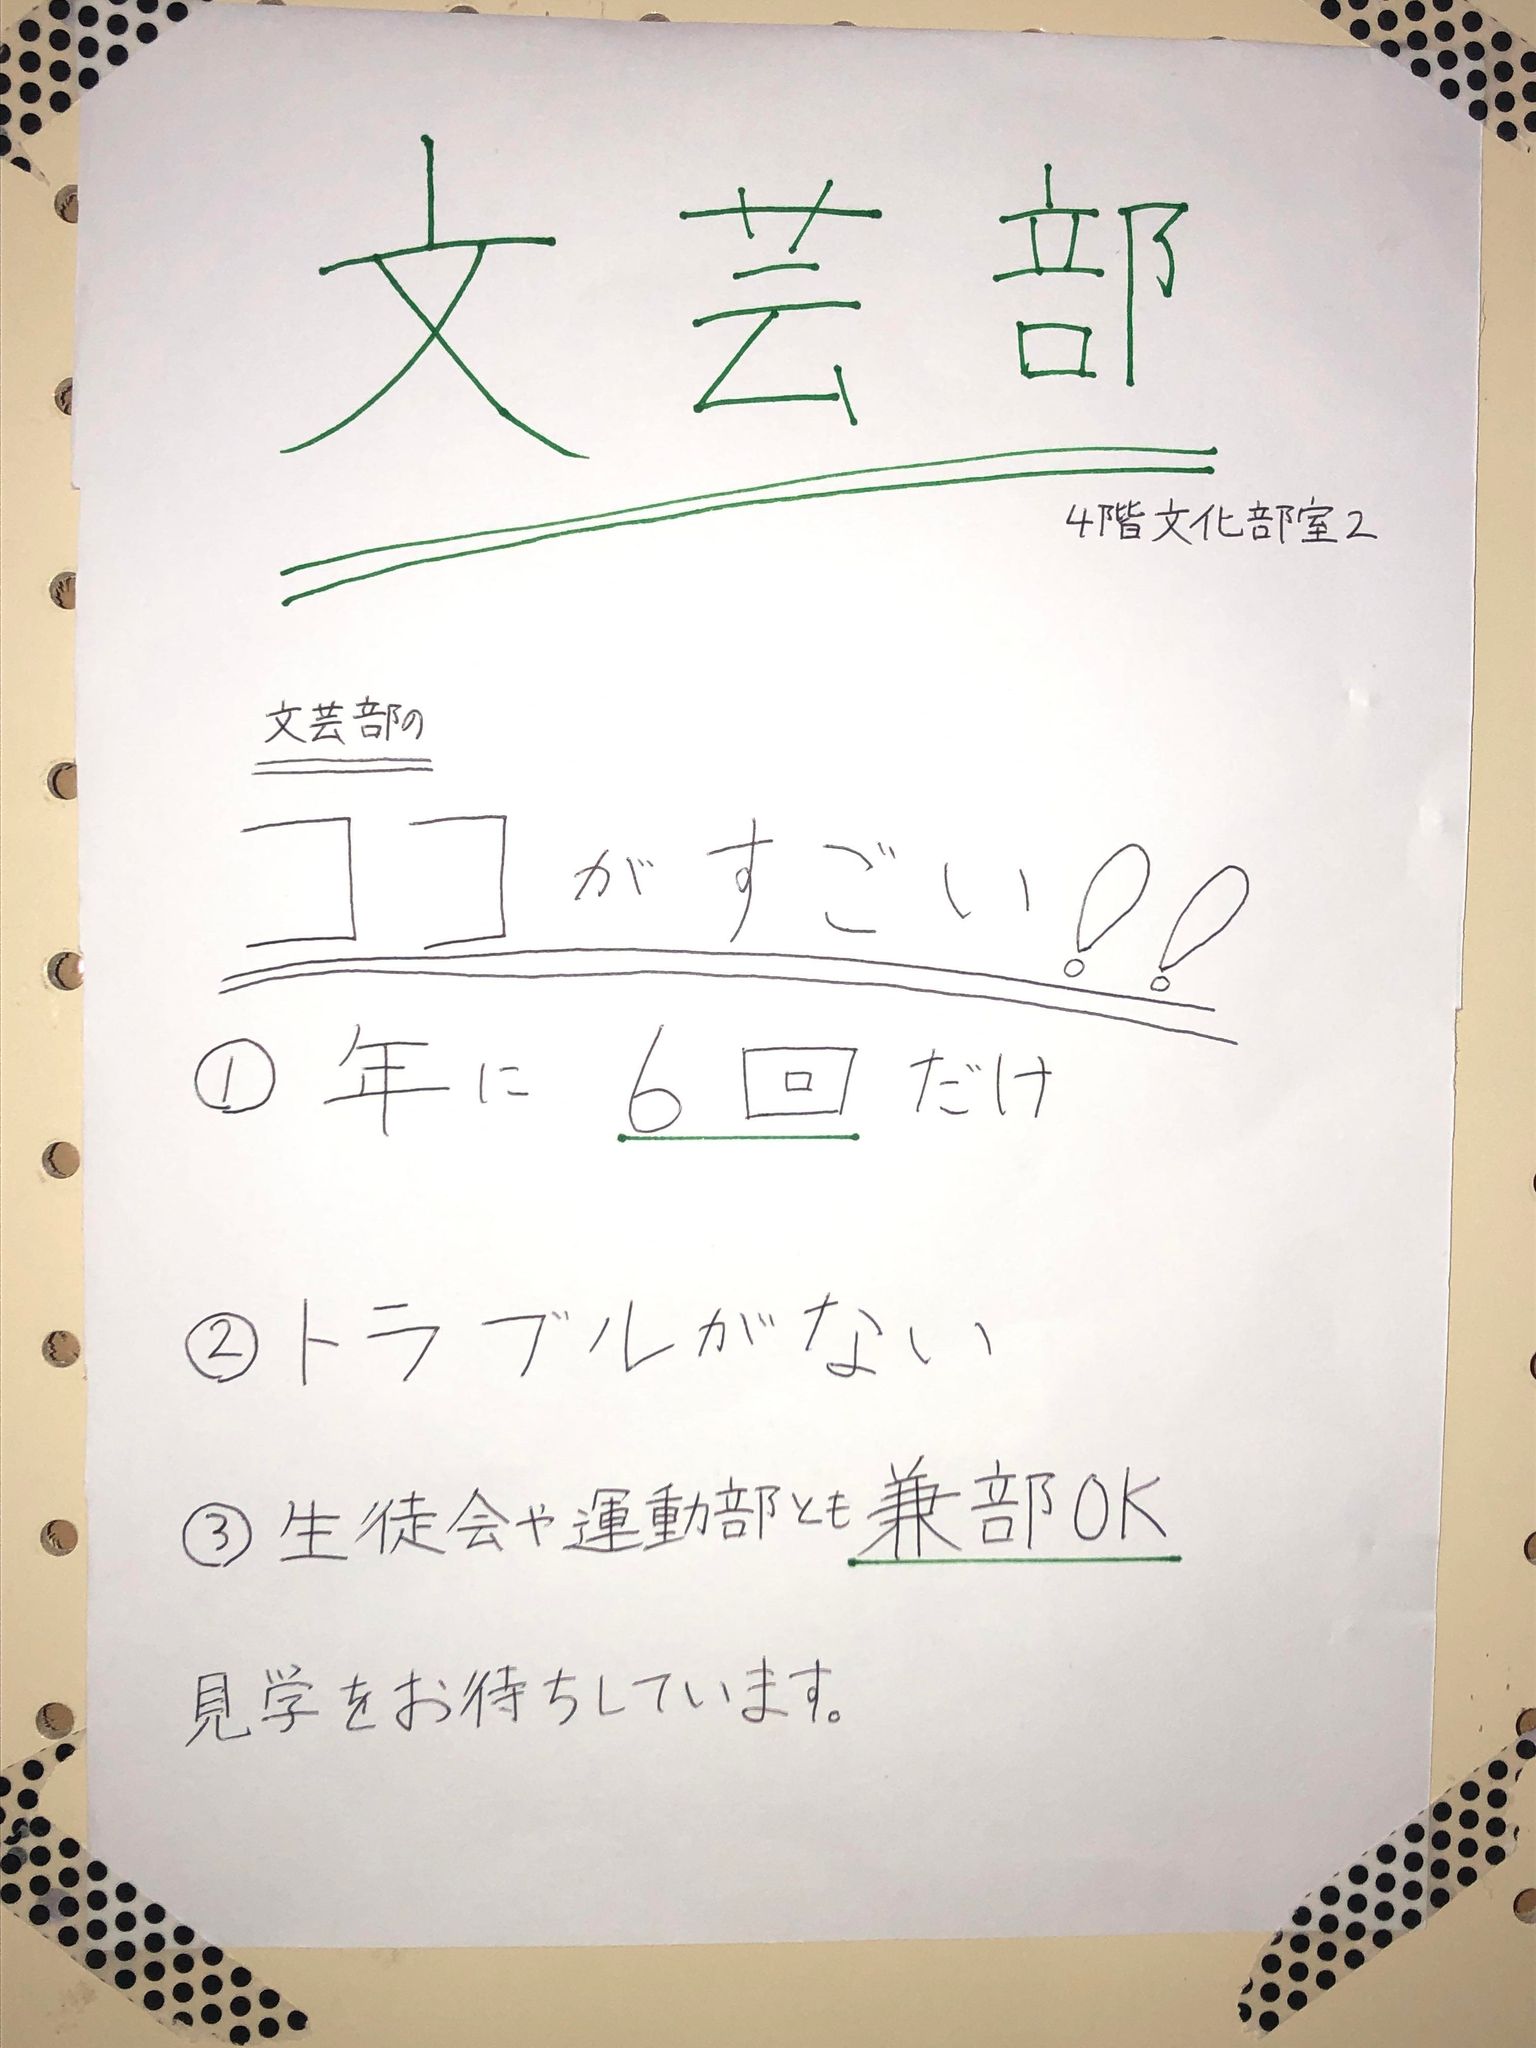 文芸部
4階文化部室2
文芸部の
ココがすごい!!
① 年に 6回だけ
② トラブルがない
③ 生徒会や運動部とも兼部OK
見学をお待ちしています。